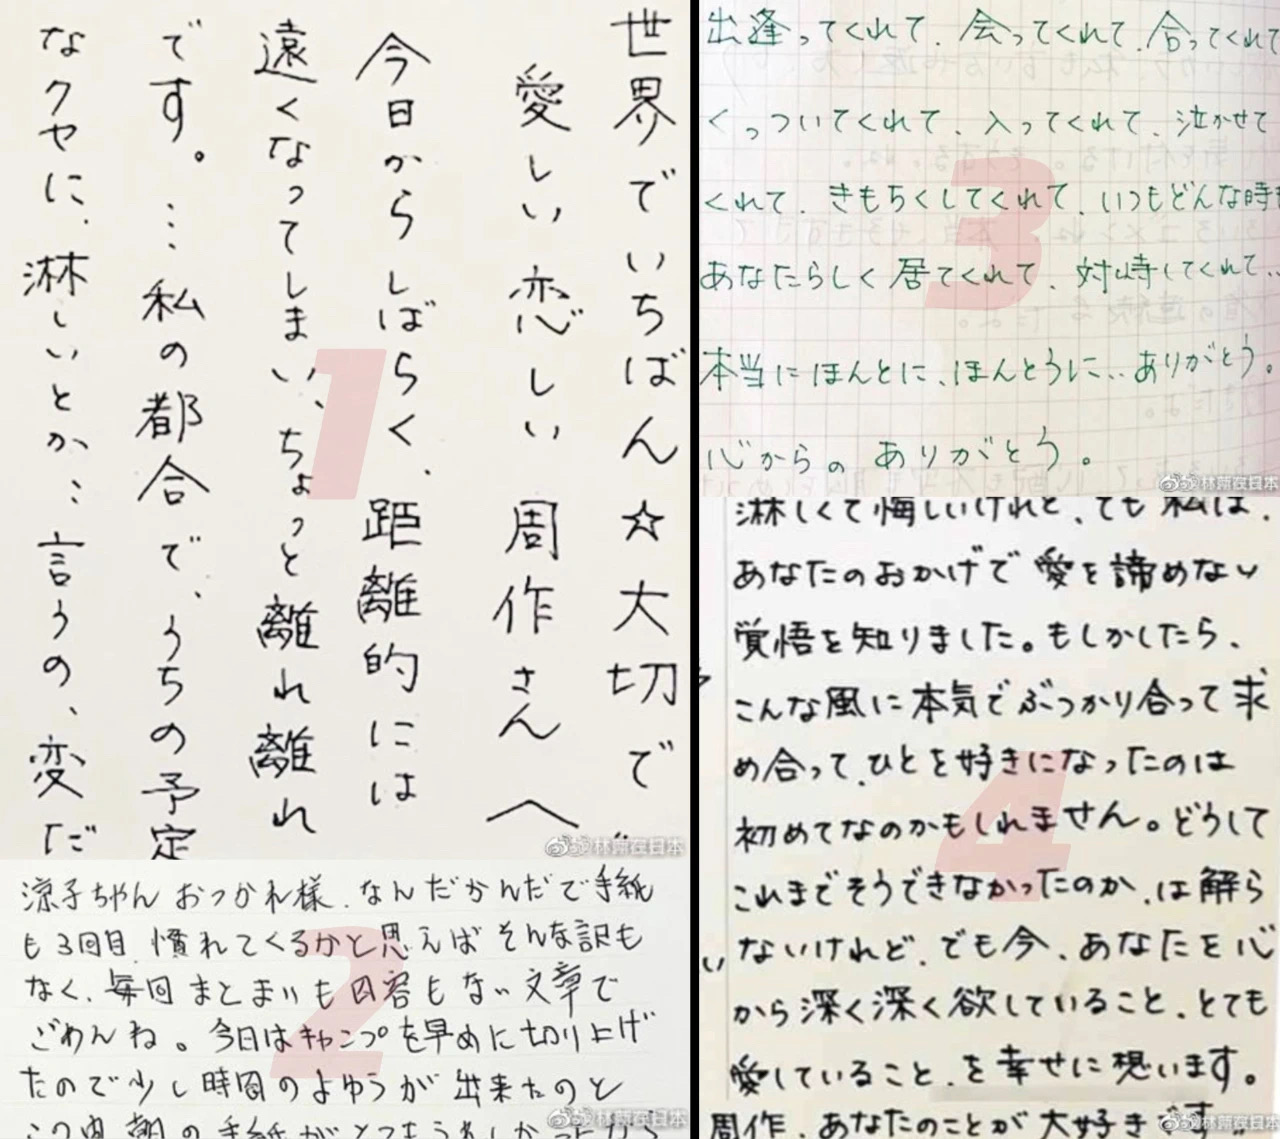 世界でいちばん☆大切で
愛しい恋しい 周作さんへ
今日からしばらく、距離的には
遠くなってしまい、ちょっと離れ離れ
です。…私の都合で、うちの予定
なクセに、淋しいとか…言うの、変だ
1
林萧在日本
涼子ちゃん おつかれ様、なんだかんだで手紙
も3回目、慣れてくるかと思えば そんな訳も
なく、毎回 まとまりも 内容も ない 文章で
ごめんね。今日はキャンプを早めに切り上げ
たので少し時間のよゆうが出来たのと
2
林萧在日本
出逢ってくれて、会ってくれて、合ってくれて
くっついてくれて、入ってくれて、泣かせて
くれて、きもちくしてくれて、いつもどんな時も
あなたらしく居てくれて、対峙してくれて…
本当に ほんとに、ほんとうに… ありがとう。
心からの ありがとう。
3
林萧在日本
淋しくて悔しいけれど、でも 私は、
あなたのおかげで 愛を諦めない
覚悟を知りました。もしかしたら、
こんな風に本気でぶつかり合って求
め合って、ひとを好きになったのは
初めてなのかもしれません。どうして
これまでそうできなかったのか、は解ら
ないけれど、でも今、あなたを心
から深く深く欲していること、とても
愛していること、を幸せに想います。
周作、あなたのことが大好きです。
4
林萧在日本